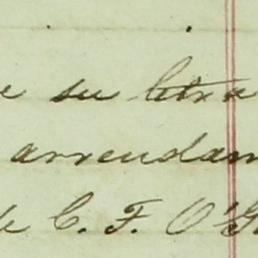 e su letra
arrendam
de C. F. O'G